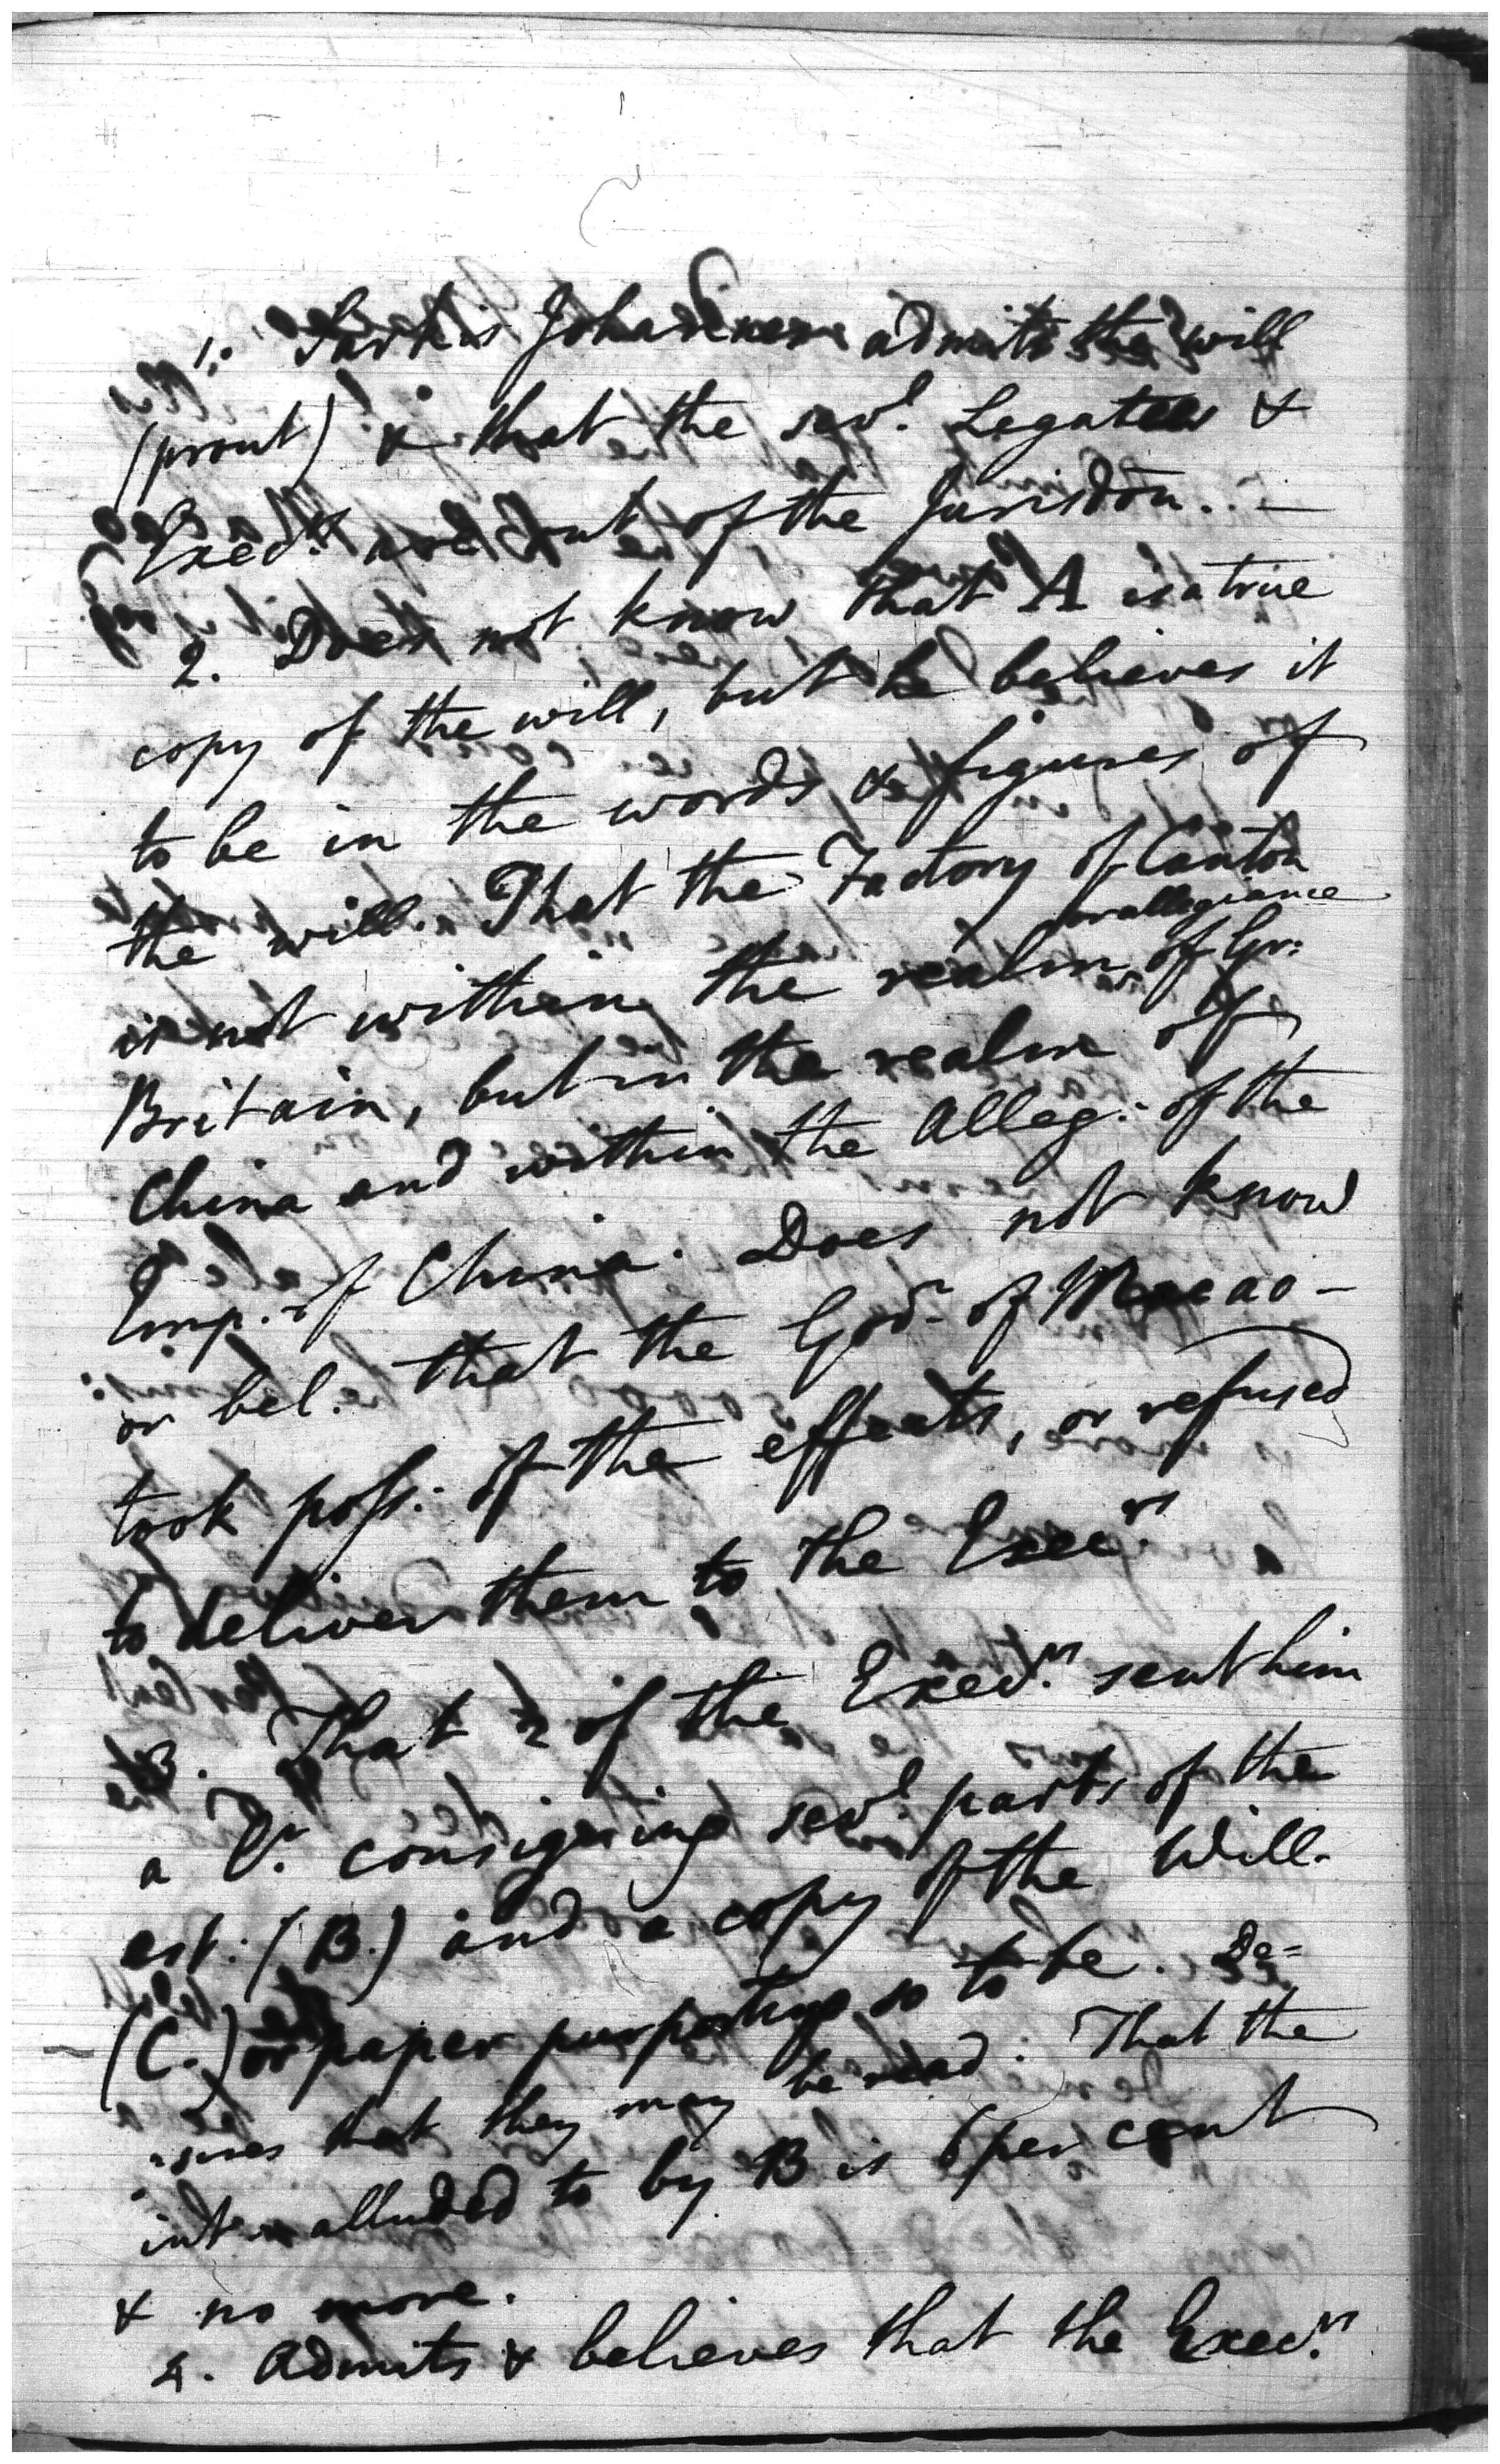 1. Sarkis Johannes admits the will
(prout) & that the sevl. Legatees &
Execrs. are out of the Jurisdon. —
2. Does not know that A is a true
copy of the will, but he believes it
to be in the words & figures of
the will. That the Factory of Canton
is not within the realm or allegiance of Gr:
Britain, but in the realm of
China and within the Alleg: of the
Emp. of China. Does not know
or bel. that the Govr. of Macao —
took poss: of the effects, or refused
to deliver them to the Execrs
3. That 2 of the Execrs. sent him
a Lr. consigning sevl. parts of the
est: (B.) and a copy of the Will.
(C.) or paper purporting so to be. De=
=sires that they may be read. That the
int alluded to by B is 6 per cent
& no more.
4. Admits & believes that the Execrs.